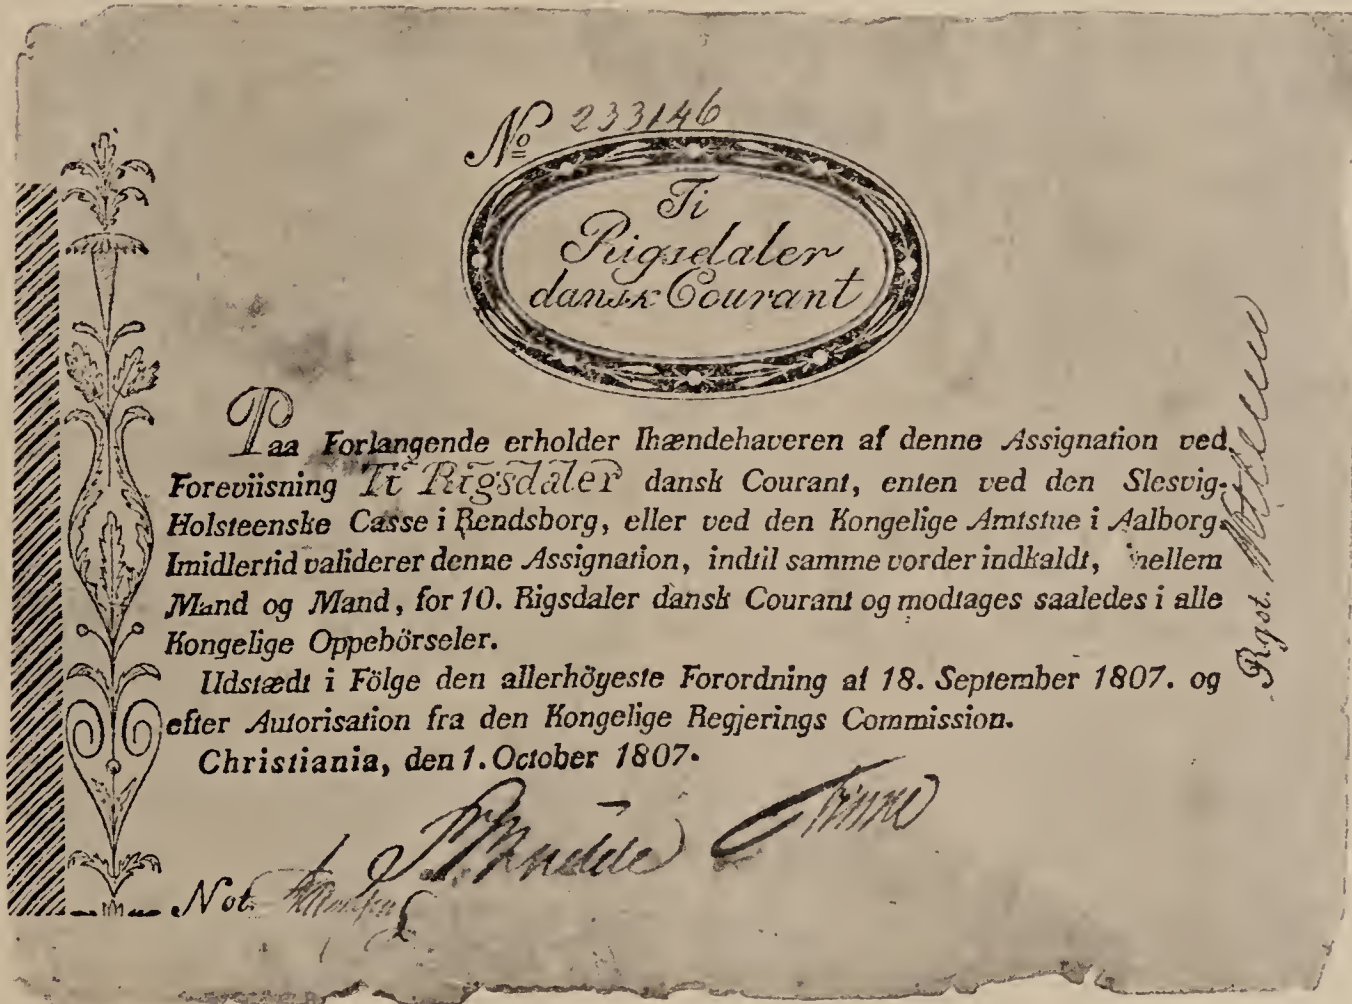 No 233146
Ti
Rigsdaler
dansk Courant
Paa Forlangende erholder Ihændehaveren af denne Assignation ved
Foreviisning Ti Rigsdaler dansk Courant, enten ved den Slesvig-
Holsteenske Casse i Rendsborg, eller ved den Kongelige Amtstue i Aalborg.
Imidlertid validerer denne Assignation, indtil samme vorder indkaldt, mellem
Mand og Mand, for 10. Rigsdaler dansk Courant og modtages saaledes i alle
Kongelige Oppebörseler.
Udstædt i Fölge den allerhöyeste Forordning af 18. September 1807. og
efter Autorisation fra den Kongelige Regjerings Commission.
Christiania, den 1. October 1807.
Not
Rgst.